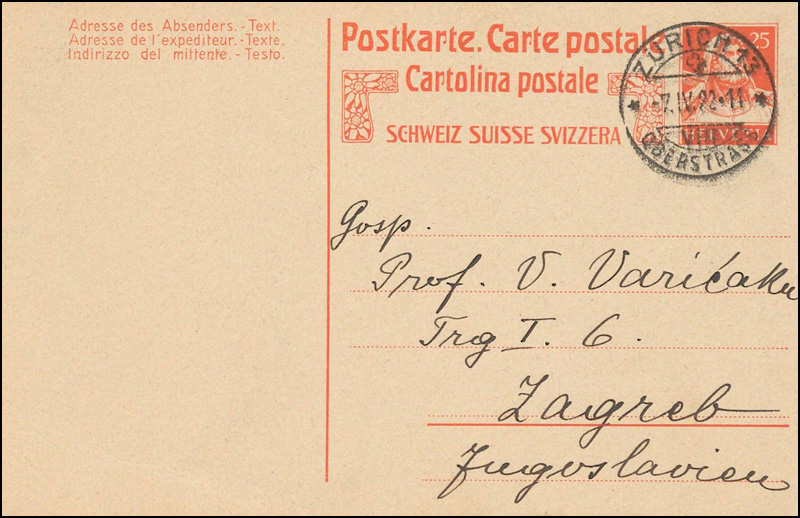 Adresse des Absenders. - Text.
Adresse de l'expediteur. - Texte.
Indirizzo del mittente. - Testo.
Postkarte. Carte postale
Cartolina postale
SCHWEIZ SUISSE SVIZZERA
25
ZÜRICH 13
7.IV.22•11
VIII
OBERSTRASS
HELVETIA
Gosp.
Prof. V. Varićaku
Trg I. 6.
Zagreb
Jugoslavien